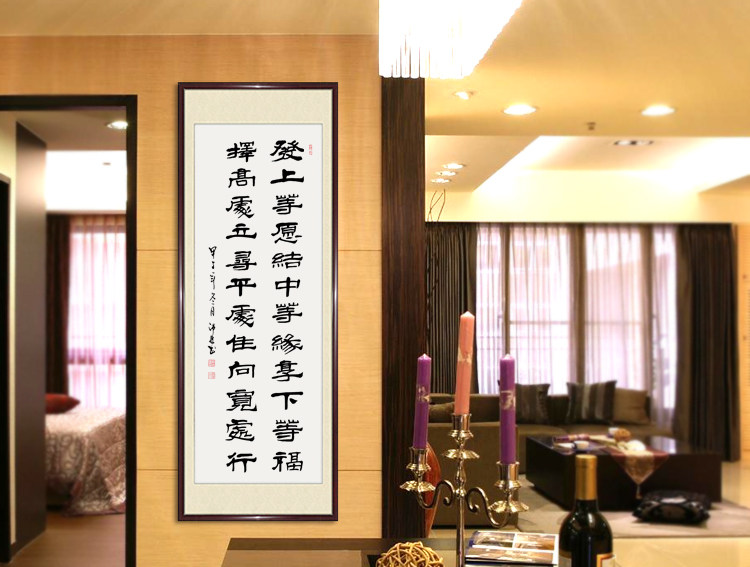 發上等愿結中等緣享下等福
擇高處立尋平處住向寬處行
甲子年冬月